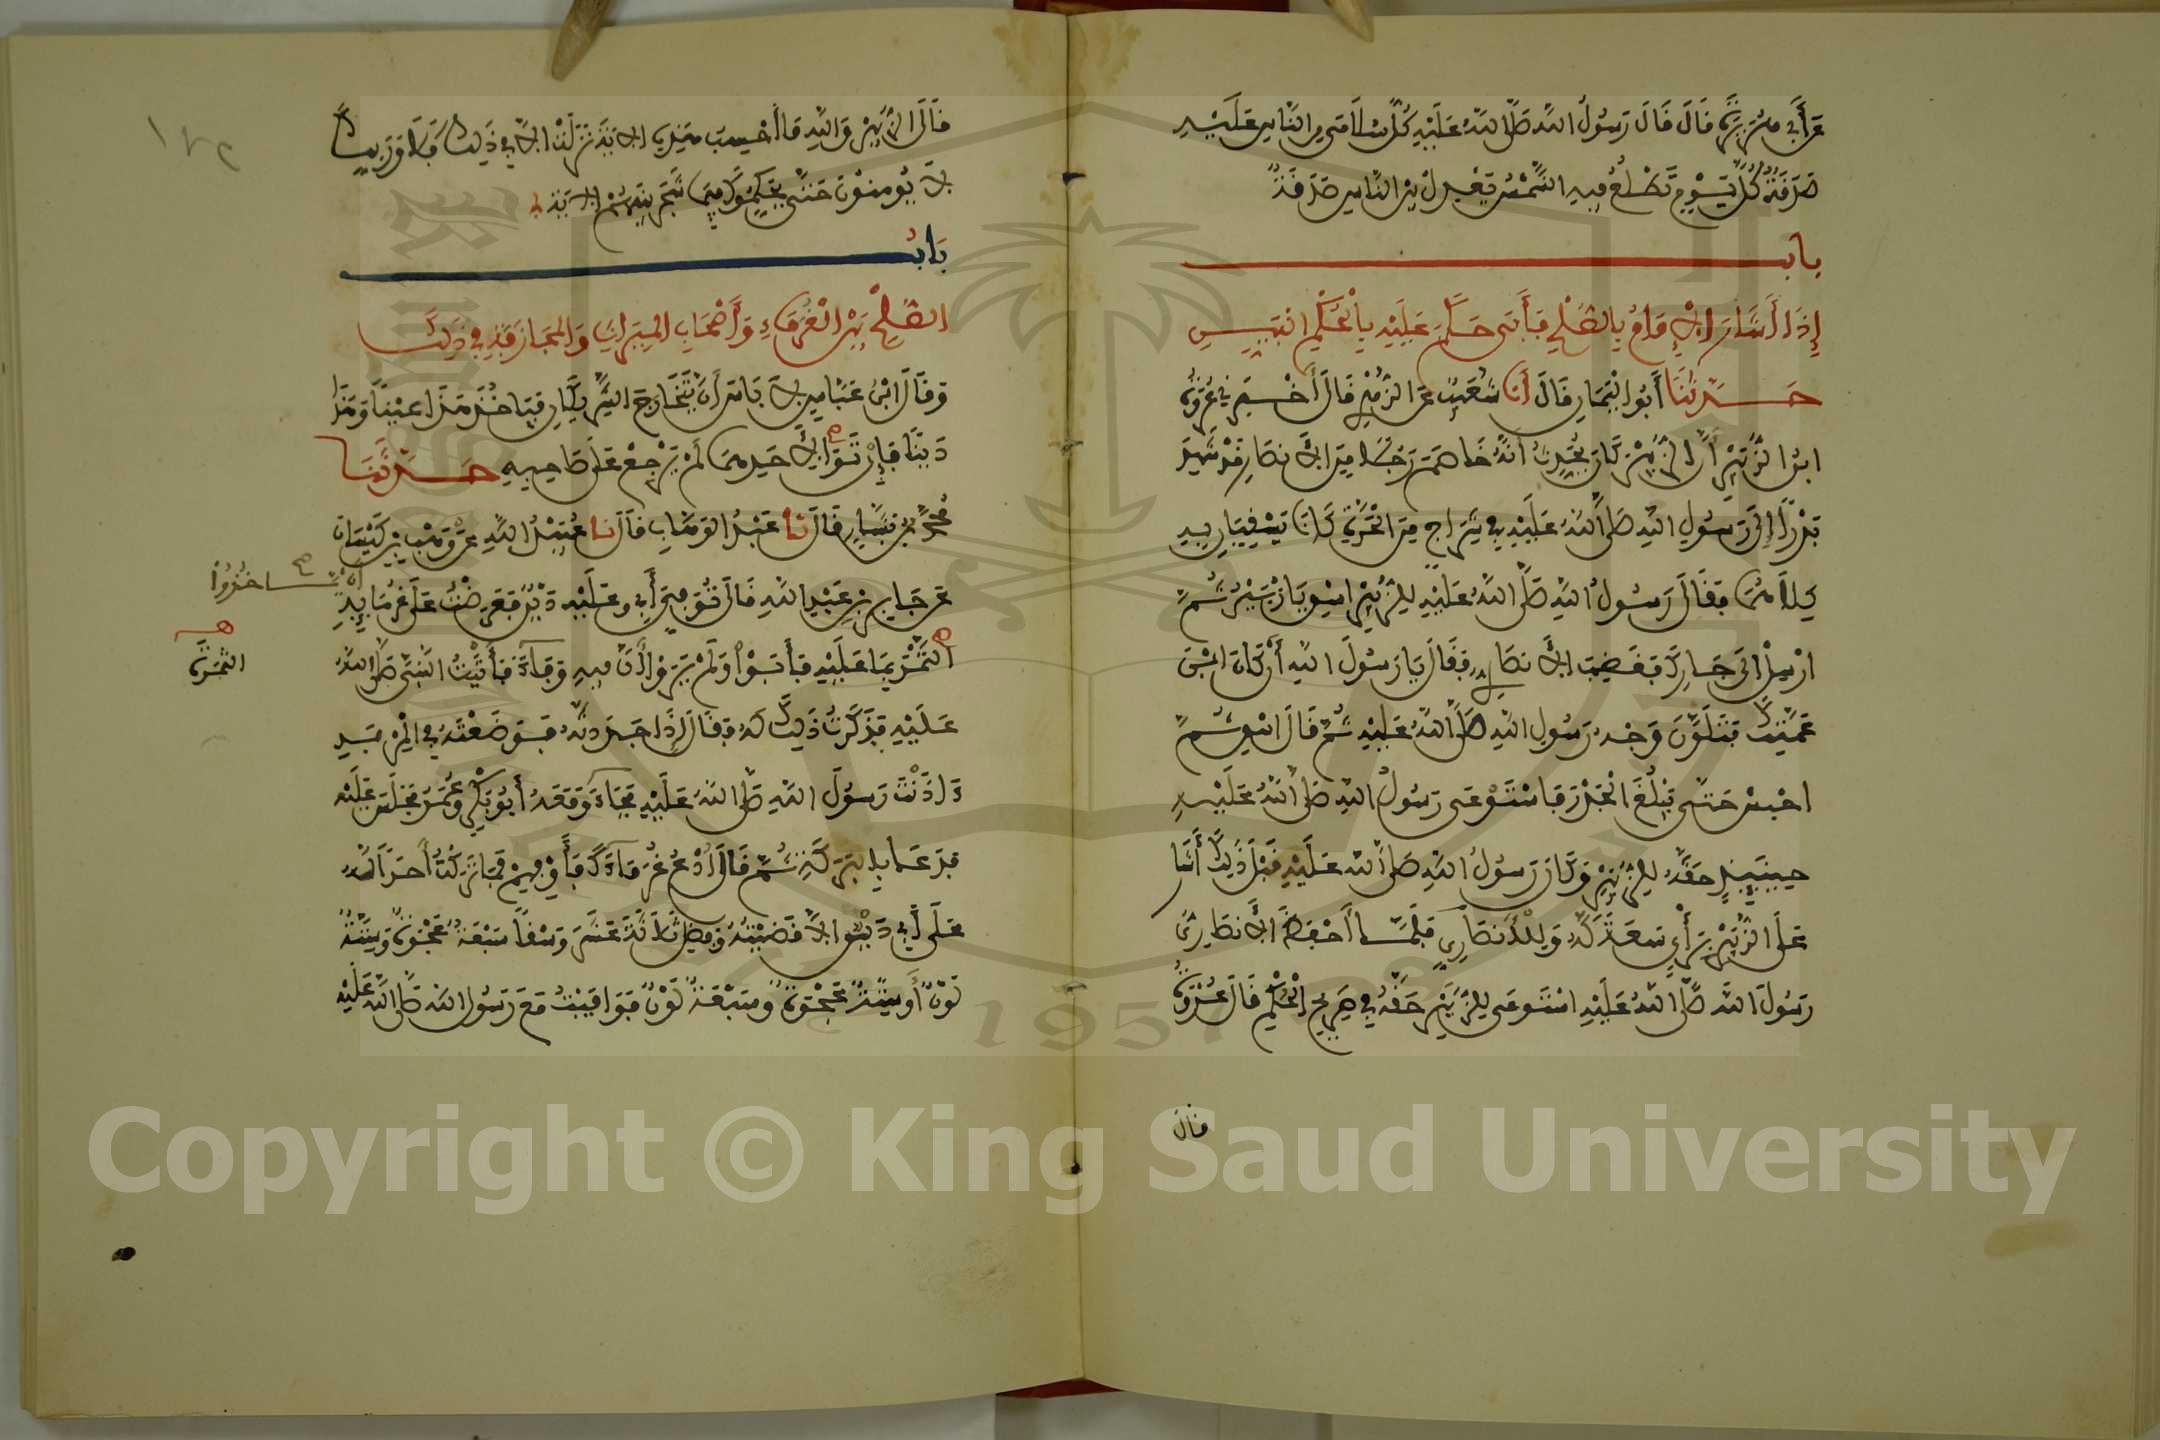 عَنْ أَبِي هُرَيْرَةَ قَالَ قَالَ رَسُولُ اللَّهِ صَلَّى اللَّهُ عَلَيْهِ كُلُّ سُلَامَى مِنَ النَّاسِ عَلَيْهِ
صَدَقَةٌ كُلَّ يَوْمٍ تَطْلُعُ فِيهِ الشَّمْسُ يَعْدِلُ بَيْنَ النَّاسِ صَدَقَةٌ
باب
إِذَا أَشَارَ الْإِمَامُ بِالصُّلْحِ فَأَبَى حَكَمَ عَلَيْهِ بِالْحُكْمِ الْبَيِّنِ
حَدَّثَنَا أَبُو الْيَمَانِ قَالَ أَنَا شُعَيْبٌ عَنِ الزُّهْرِيِّ قَالَ أَخْبَرَنِي عُرْوَةُ
ابْنُ الزُّبَيْرِ أَنَّ الزُّبَيْرَ كَانَ يُحَدِّثُ أَنَّهُ خَاصَمَ رَجُلًا مِنَ الْأَنْصَارِ قَدْ شَهِدَ
بَدْرًا إِلَى رَسُولِ اللَّهِ صَلَّى اللَّهُ عَلَيْهِ فِي شِرَاجٍ مِنَ الْحَرَّةِ كَانَا يَسْقِيَانِ بِهِ
كِلَاهُمَا فَقَالَ رَسُولُ اللَّهِ صَلَّى اللَّهُ عَلَيْهِ لِلزُّبَيْرِ اسْقِ يَا زُبَيْرُ ثُمَّ
ارْسِلْ إِلَى جَارِكَ فَغَضِبَ الْأَنْصَارِيُّ فَقَالَ يَا رَسُولَ اللَّهِ أَنْ كَانَ ابْنَ
عَمَّتِكَ فَتَلَوَّنَ وَجْهُ رَسُولِ اللَّهِ صَلَّى اللَّهُ عَلَيْهِ ثُمَّ قَالَ اسْقِ ثُمَّ
احْبِسْ حَتَّى تَبْلُغَ الْجَدْرَ فَاسْتَوْعَى رَسُولُ اللَّهِ صَلَّى اللَّهُ عَلَيْهِ
حِينَئِذٍ حَقَّهُ لِلزُّبَيْرِ وَكَانَ رَسُولُ اللَّهِ صَلَّى اللَّهُ عَلَيْهِ قَبْلَ ذَلِكَ أَشَارَ
عَلَى الزُّبَيْرِ بِرَأْيٍ سَعَةٍ لَهُ وَلِلْأَنْصَارِيِّ فَلَمَّا أَحْفَظَ الْأَنْصَارِيُّ
رَسُولَ اللَّهِ صَلَّى اللَّهُ عَلَيْهِ اسْتَوْعَى لِلزُّبَيْرِ حَقَّهُ فِي صَرِيحِ الْحُكْمِ قَالَ عُرْوَةُ
قال
قَالَ الزُّبَيْرُ وَاللَّهِ مَا أَحْسِبُ هَذِهِ الْآيَةَ نَزَلَتْ إِلَّا فِي ذَلِكَ فَلَا وَرَبِّكَ
لَا يُؤْمِنُونَ حَتَّى يُحَكِّمُوكَ فِيمَا شَجَرَ بَيْنَهُمْ الْآيَةَ
بَابُ
الصُّلْحِ بَيْنَ الْغُرَمَاءِ وَأَصْحَابِ الْمِيرَاثِ وَالْمُجَازَفَةِ فِي ذَلِكَ
وَقَالَ ابْنُ عَبَّاسٍ لَا بَأْسَ أَنْ يَتَخَارَجَ الشَّرِيكَانِ فَيَأْخُذَ هَذَا عَيْنًا وَهَذَا
دَيْنًا فَإِنْ تَوِيَ لِأَحَدِهِمَا لَمْ يَرْجِعْ عَلَى صَاحِبِهِ حَدَّثَنَا
مُحَمَّدُ بْنُ بَشَّارٍ قَالَ نا عَبْدُ الْوَهَّابِ قَالَ نا عُبَيْدُ اللَّهِ عَنْ وَهْبِ بْنِ كَيْسَانَ
عَنْ جَابِرِ بْنِ عَبْدِ اللَّهِ قَالَ تُوُفِّيَ أَبِي وَعَلَيْهِ دَيْنٌ فَعَرَضْتُ عَلَى غُرَمَائِهِ
أَنْ يَاخُذُوا
التَّمْرَ بِمَا عَلَيْهِ فَأَبَوْا وَلَمْ يَرَوْا أَنَّ فِيهِ وَفَاءً فَأَتَيْتُ النَّبِيَّ صَلَّى اللَّهُ
الثَّمَرَةَ
عَلَيْهِ فَذَكَرْتُ ذَلِكَ لَهُ فَقَالَ إِذَا جَدَدْتَهُ فَوَضَعْتَهُ فِي الْمِرْبَدِ
آذَنْتَ رَسُولَ اللَّهِ صَلَّى اللَّهُ عَلَيْهِ فَجَاءَ وَمَعَهُ أَبُو بَكْرٍ وَعُمَرُ فَجَلَسَ عَلَيْهِ
فَدَعَا بِالْبَرَكَةِ ثُمَّ قَالَ ادْعُ غُرَمَاءَكَ فَأَوْفِهِمْ فَمَا تَرَكْتُ أَحَدًا لَهُ
عَلَى أَبِي دَيْنٌ إِلَّا قَضَيْتُهُ وَفَضَلَ ثَلَاثَةَ عَشَرَ وَسْقًا سَبْعَةٌ عَجْوَةٌ وَسِتَّةٌ
لَوْنٌ أَوْ سِتَّةٌ عَجْوَةٌ وَسَبْعَةٌ لَوْنٌ فَوَافَيْتُ مَعَ رَسُولِ اللَّهِ صَلَّى اللَّهُ عَلَيْهِ
١٨٢
Copyright © King Saud University
1957